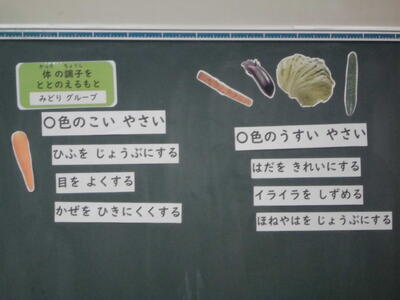 体の調子を
ととのえるもと
みどり グループ
〇色のこい やさい
ひふを じょうぶにする
目を よくする
かぜを ひきにくくする
〇色のうすい やさい
はだを きれいにする
イライラを しずめる
ほねやはを じょうぶにする